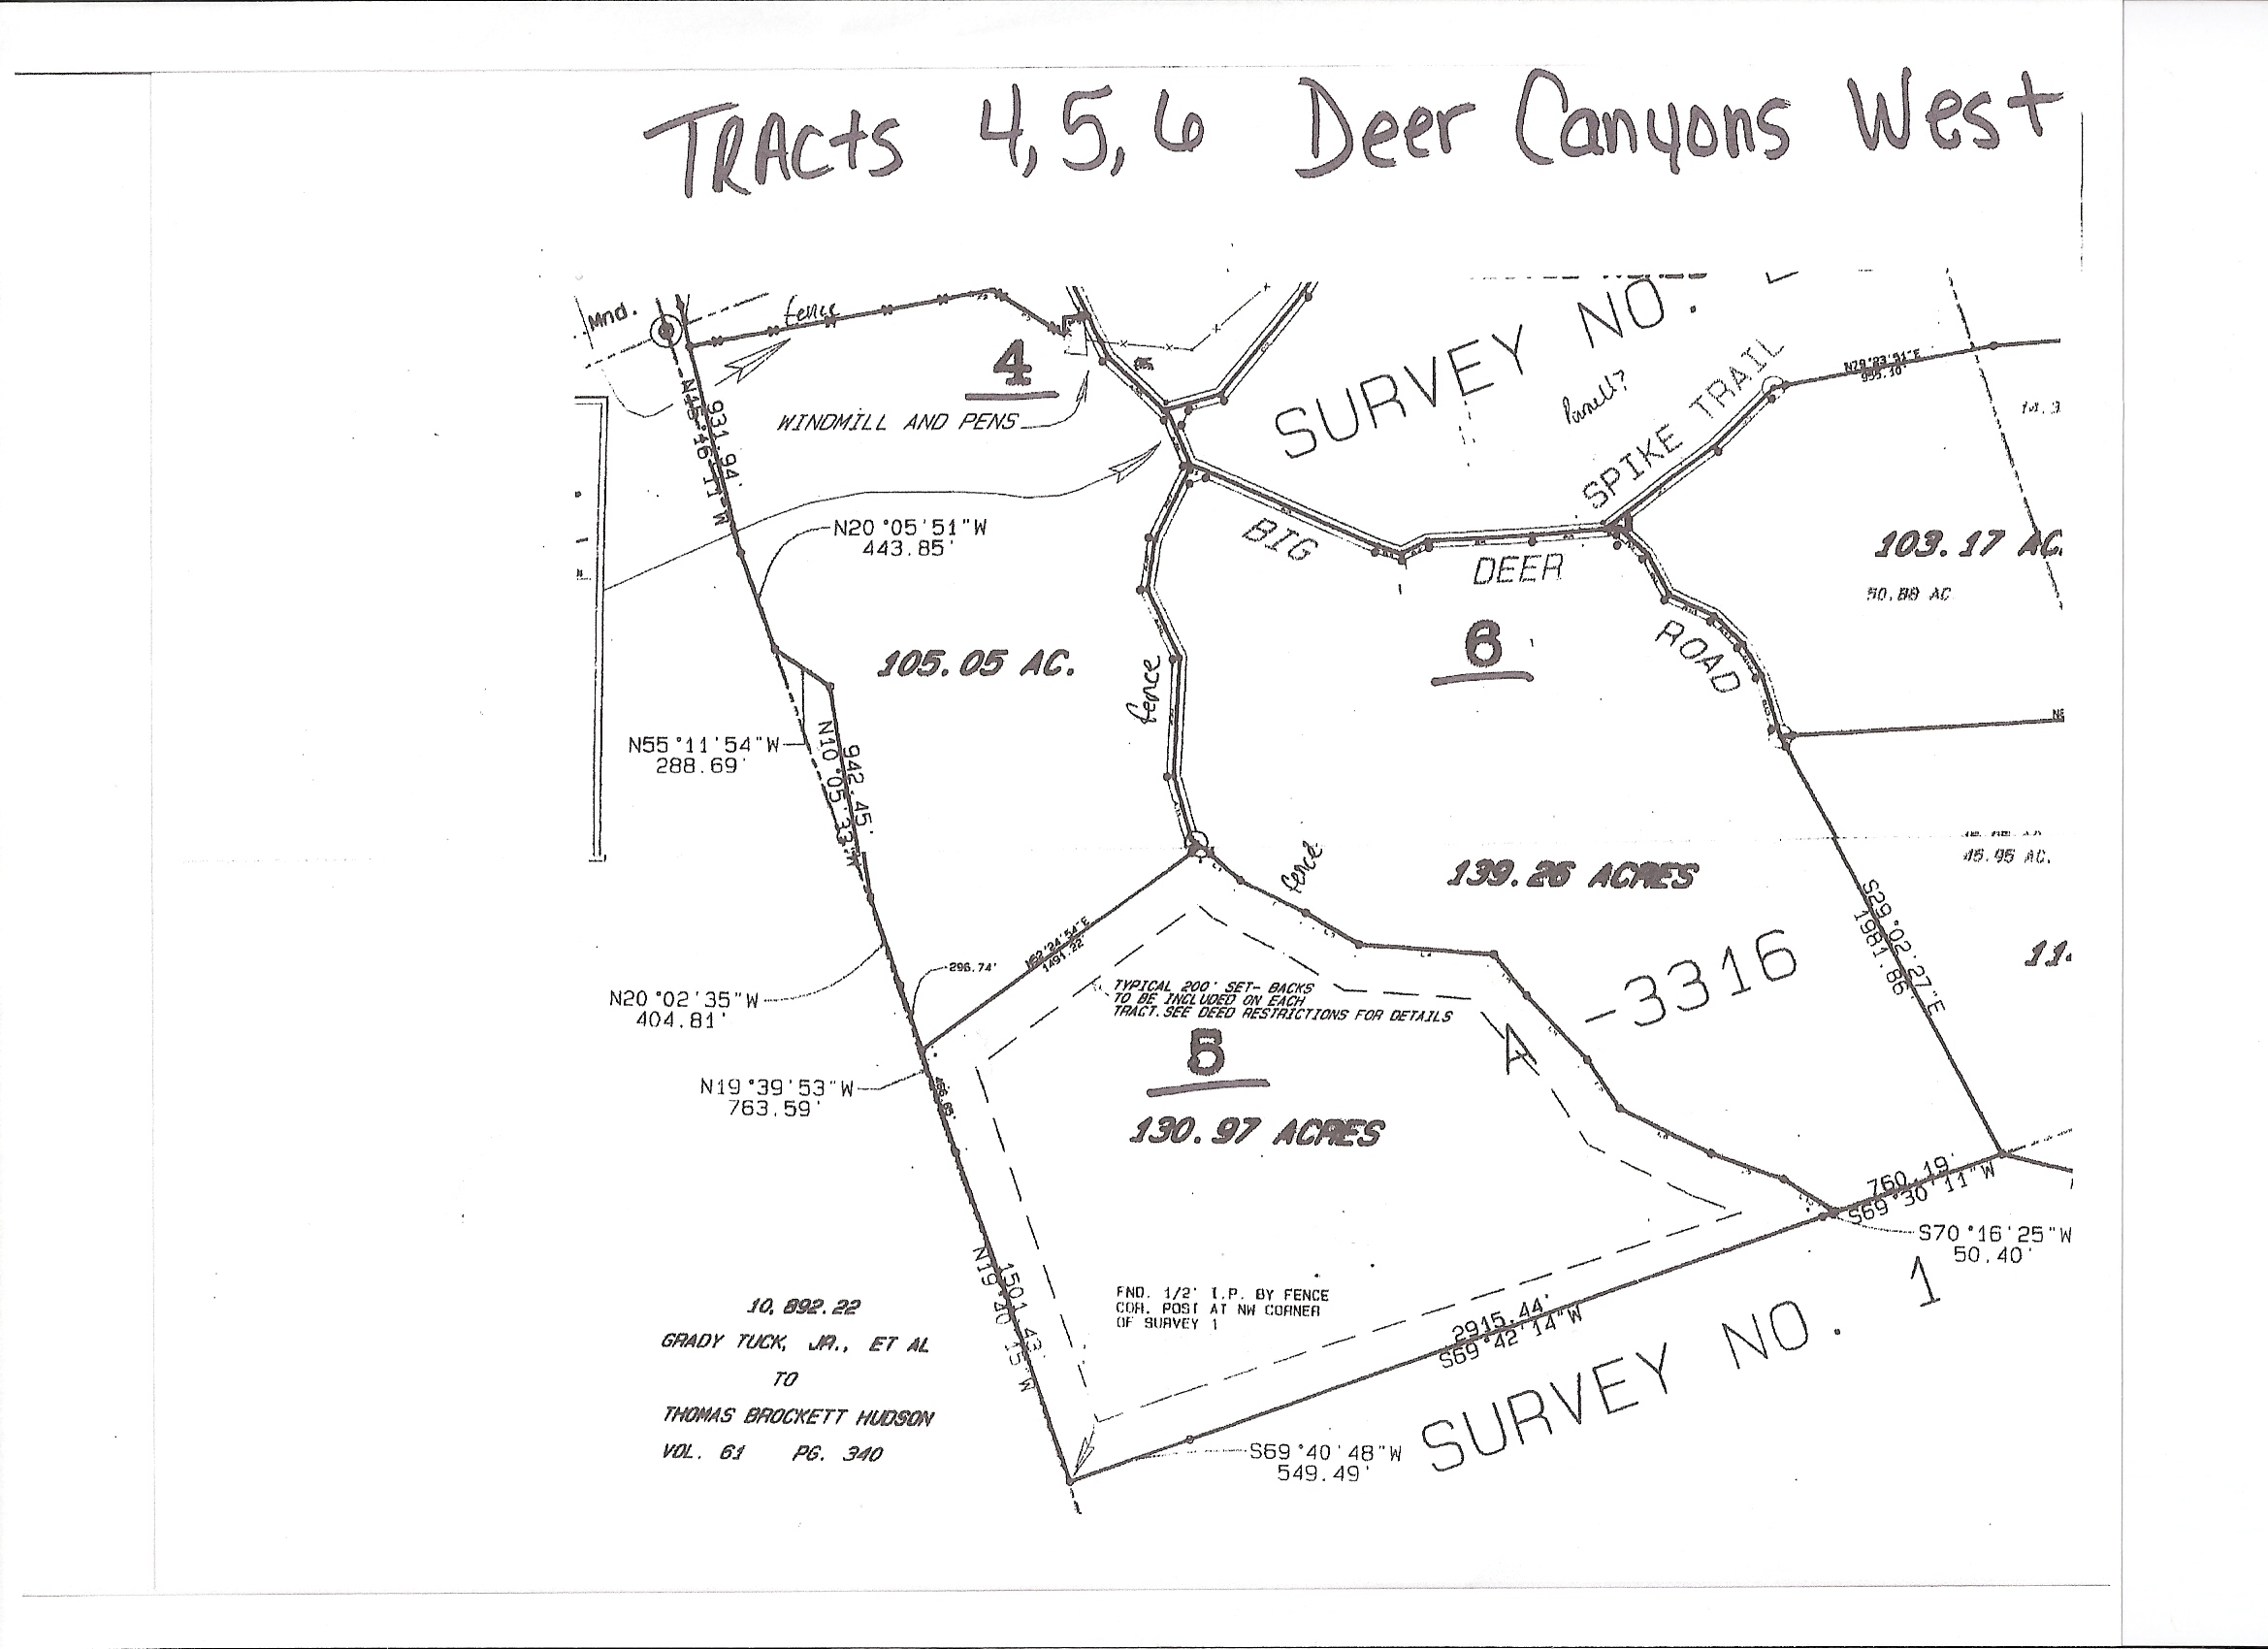 TRActs 4,5,6 Deer Canyons West
Mnd.
fence
4
WINDMILL AND PENS
SURVEY NO.
SPIKE TRAIL
N79°23'51"E
931.94'
N20°05'51"W
443.85'
BIG
DEER
ROAD
6
103.17 AC.
50.88 AC
105.05 AC.
fence
N55°11'54"W
288.69'
N10°05'33"W
942.45'
fence
139.26 ACRES
45.95 AC.
S29°02'27"E
1981.86'
11.
A -3316
N62°24'54"E
1491.22'
296.74'
N20°02'35"W
404.81'
TYPICAL 200' SET- BACKS
TO BE INCLUDED ON EACH
TRACT.SEE DEED RESTRICTIONS FOR DETAILS
5
130.97 ACRES
N19°39'53"W
763.59'
760.19'
S69°30'11"W
S70°16'25"W
50.40'
N19°40'15"W
1501.43'
FND. 1/2' I.P. BY FENCE
COR. POST AT NW CORNER
OF SURVEY 1
2915.44'
S69°42'14"W
SURVEY NO. 1
S69°40'48"W
549.49'
10,892.22
GRADY TUCK, JR., ET AL
TO
THOMAS BROCKETT HUDSON
VOL. 61 PG. 340